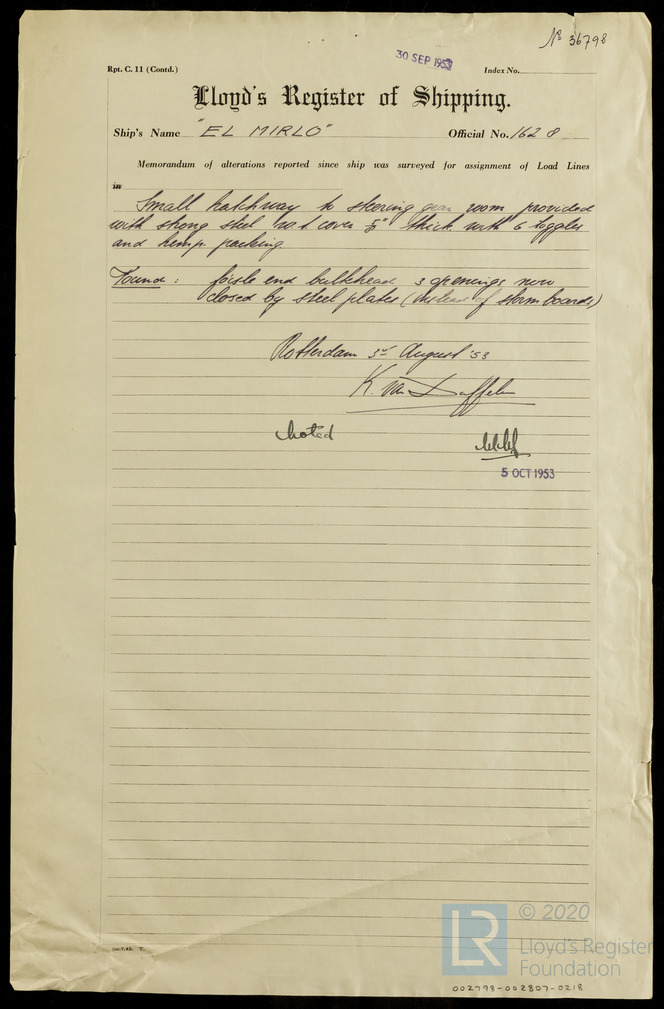 No 36798
30 SEP 1953
Rpt. C. 11 (Contd.)
Index No.
Lloyd's Register of Shipping.
Ship's Name "EL MIRLO"
Official No. 1628
Memorandum of alterations reported since ship was surveyed for assignment of Load Lines
in
Small hatchway to steering gear room provided
with strong steel W.T cover thick with 6 toggles
and hemp packing.
Found: focsle end bulkhead 3 openings now
closed by steel plates (instead of storm boards)
Rotterdam 3rd August '53
K. van Duffelen
Noted
5 OCT 1953
© 2020
LR
Lloyd's Register
Foundation
002798-002807-0218